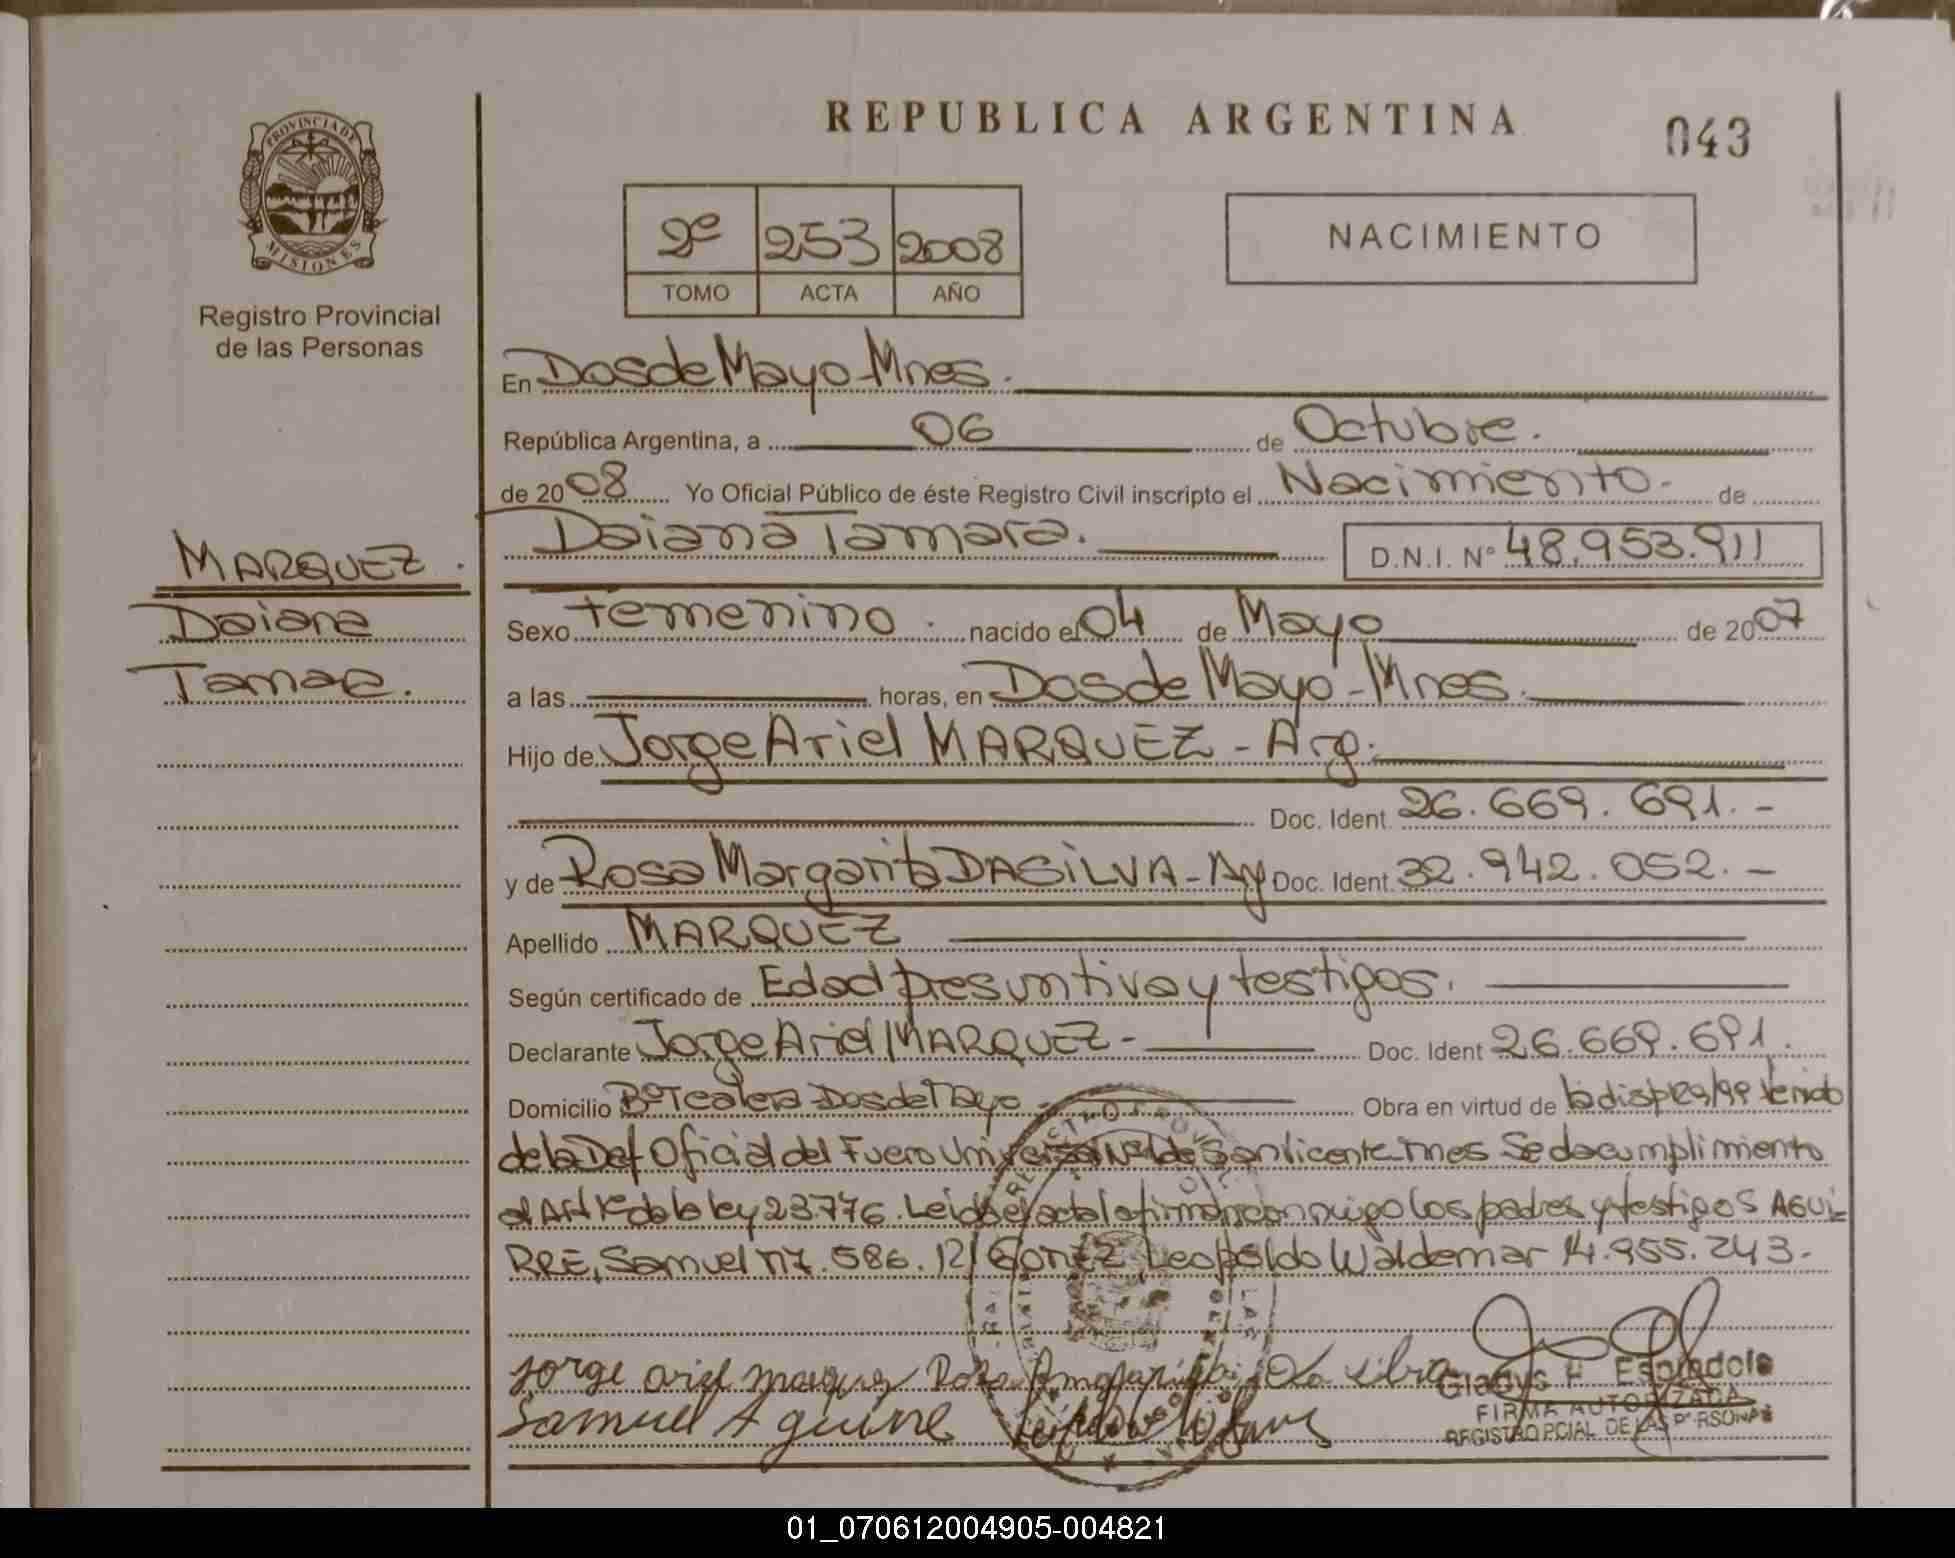 REPUBLICA ARGENTINA
043
PROVINCIA DE
MISIONES
Registro Provincial
de las Personas
2º 253 2008
TOMO ACTA AÑO
NACIMIENTO
En Dos de Mayo-Mnes.
República Argentina, a 06 de Octubre.
de 2008 Yo Oficial Público de éste Registro Civil inscripto el Nacimiento. de
Daiana Tamara. D.N.I. Nº 48.953.911
MARQUEZ.
Daiana
Tamara.
Sexo Femenino. nacido el 04 de Mayo de 2007
a las horas, en Dos de Mayo-Mnes.
Hijo de Jorge Ariel MARQUEZ - Arg.
Doc. Ident. 26.669.691.-
y de Rosa Margarita DASILVA-Arg Doc. Ident. 32.942.052.-
Apellido MARQUEZ
Según certificado de Edad presuntiva y testigos.
Declarante Jorge Ariel MARQUEZ- Doc. Ident 26.669.691.
Domicilio Bº Tealera Dos de Mayo - Obra en virtud de la disp
de la Def Oficial del Fuero Universal de San Vicente Mnes Se da cumplimiento
al Art 1º de la ley 23.776. Leída el acta la firman conmigo los padres y testigos AGUI-
RRE, Samuel 586. Leopoldo Waldemar 14.955.243.
Jorge ariel marquez Rosa margarita Da silva
Samuel Aguirre
Gladys H Espindola
FIRMA AUTORIZADA
REGISTRO PCIAL DE LAS PERSONAS
01_070612004905-004821